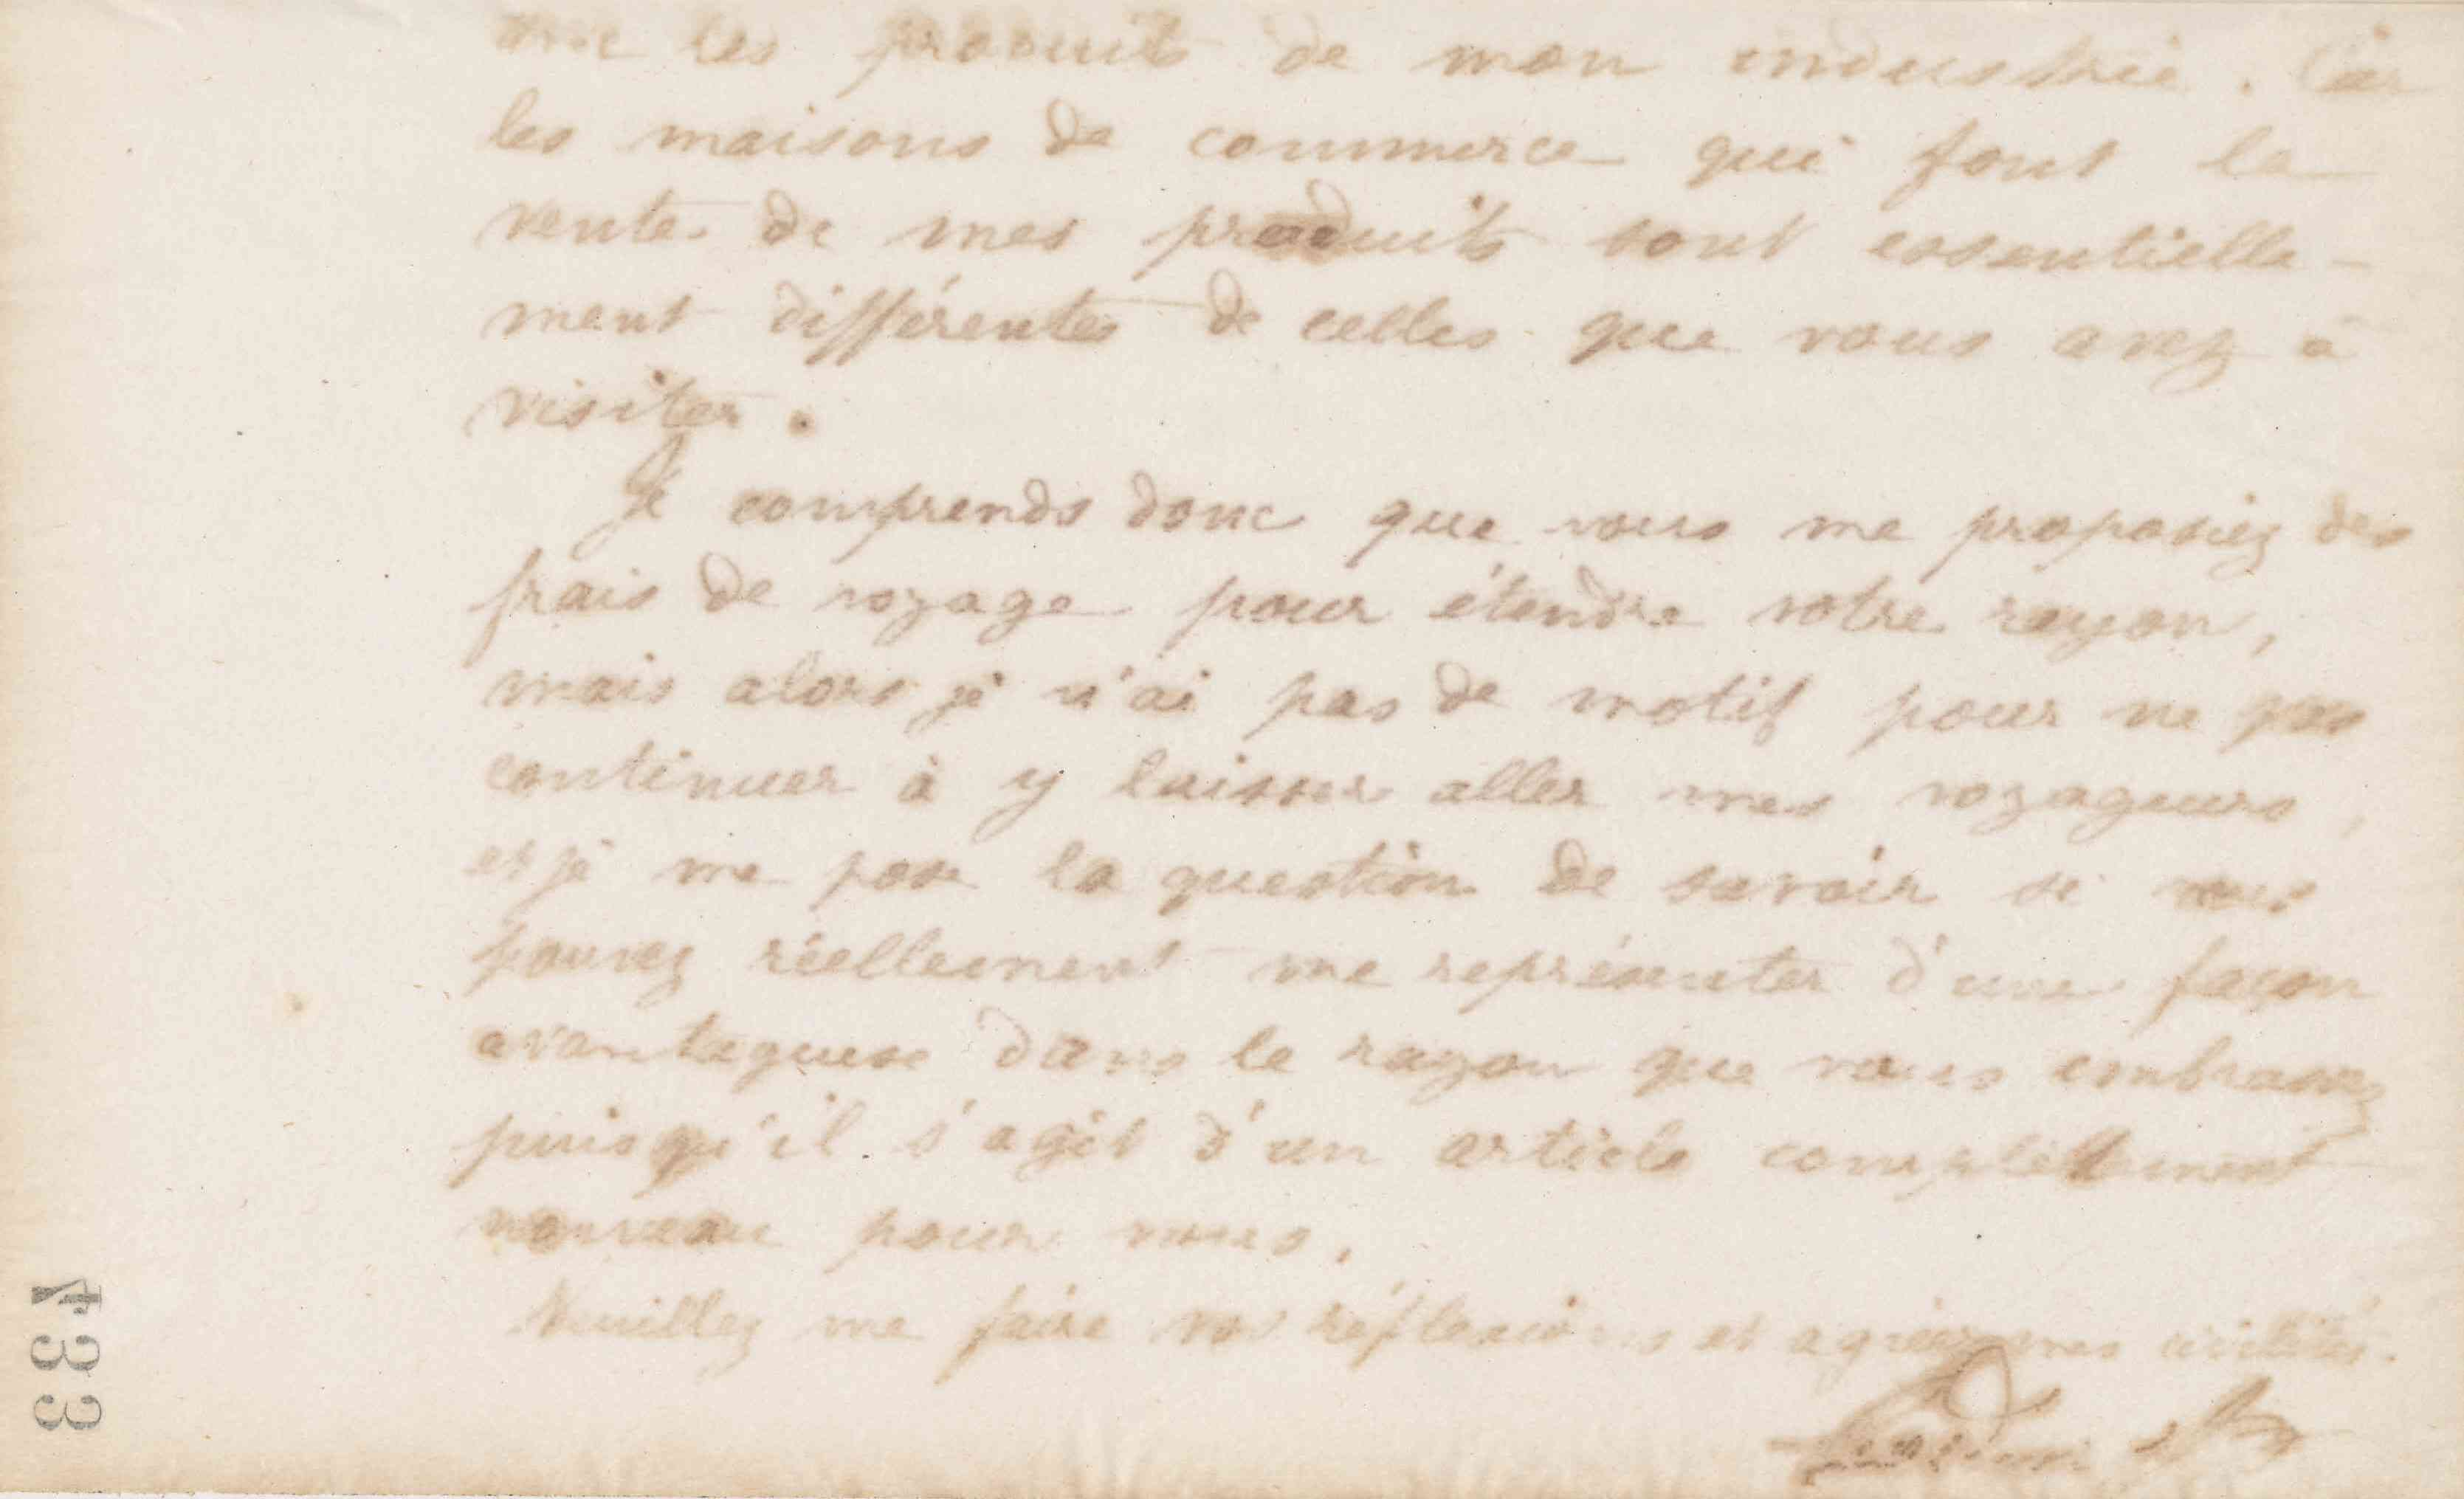 les produits de mon industrie. Car
les maisons de commerce qui font la
vente de mes produits sont essentielle-
ment différentes de celles que vous avez à
visiter.
Je comprends donc que vous me proposiez des
frais de voyage pour étendre votre rayon,
mais alors je n'ai pas de motif pour ne pas
continuer à y laisser aller mes voyageurs,
et je me pose la question de savoir si vous
pouvez réellement me représenter d'une façon
avantageuse dans le rayon que vous embrassez
puisqu'il s'agit d'un article complètement
nouveau pour vous.
Veuillez me faire vos réflexions et agréez mes civilités.
433